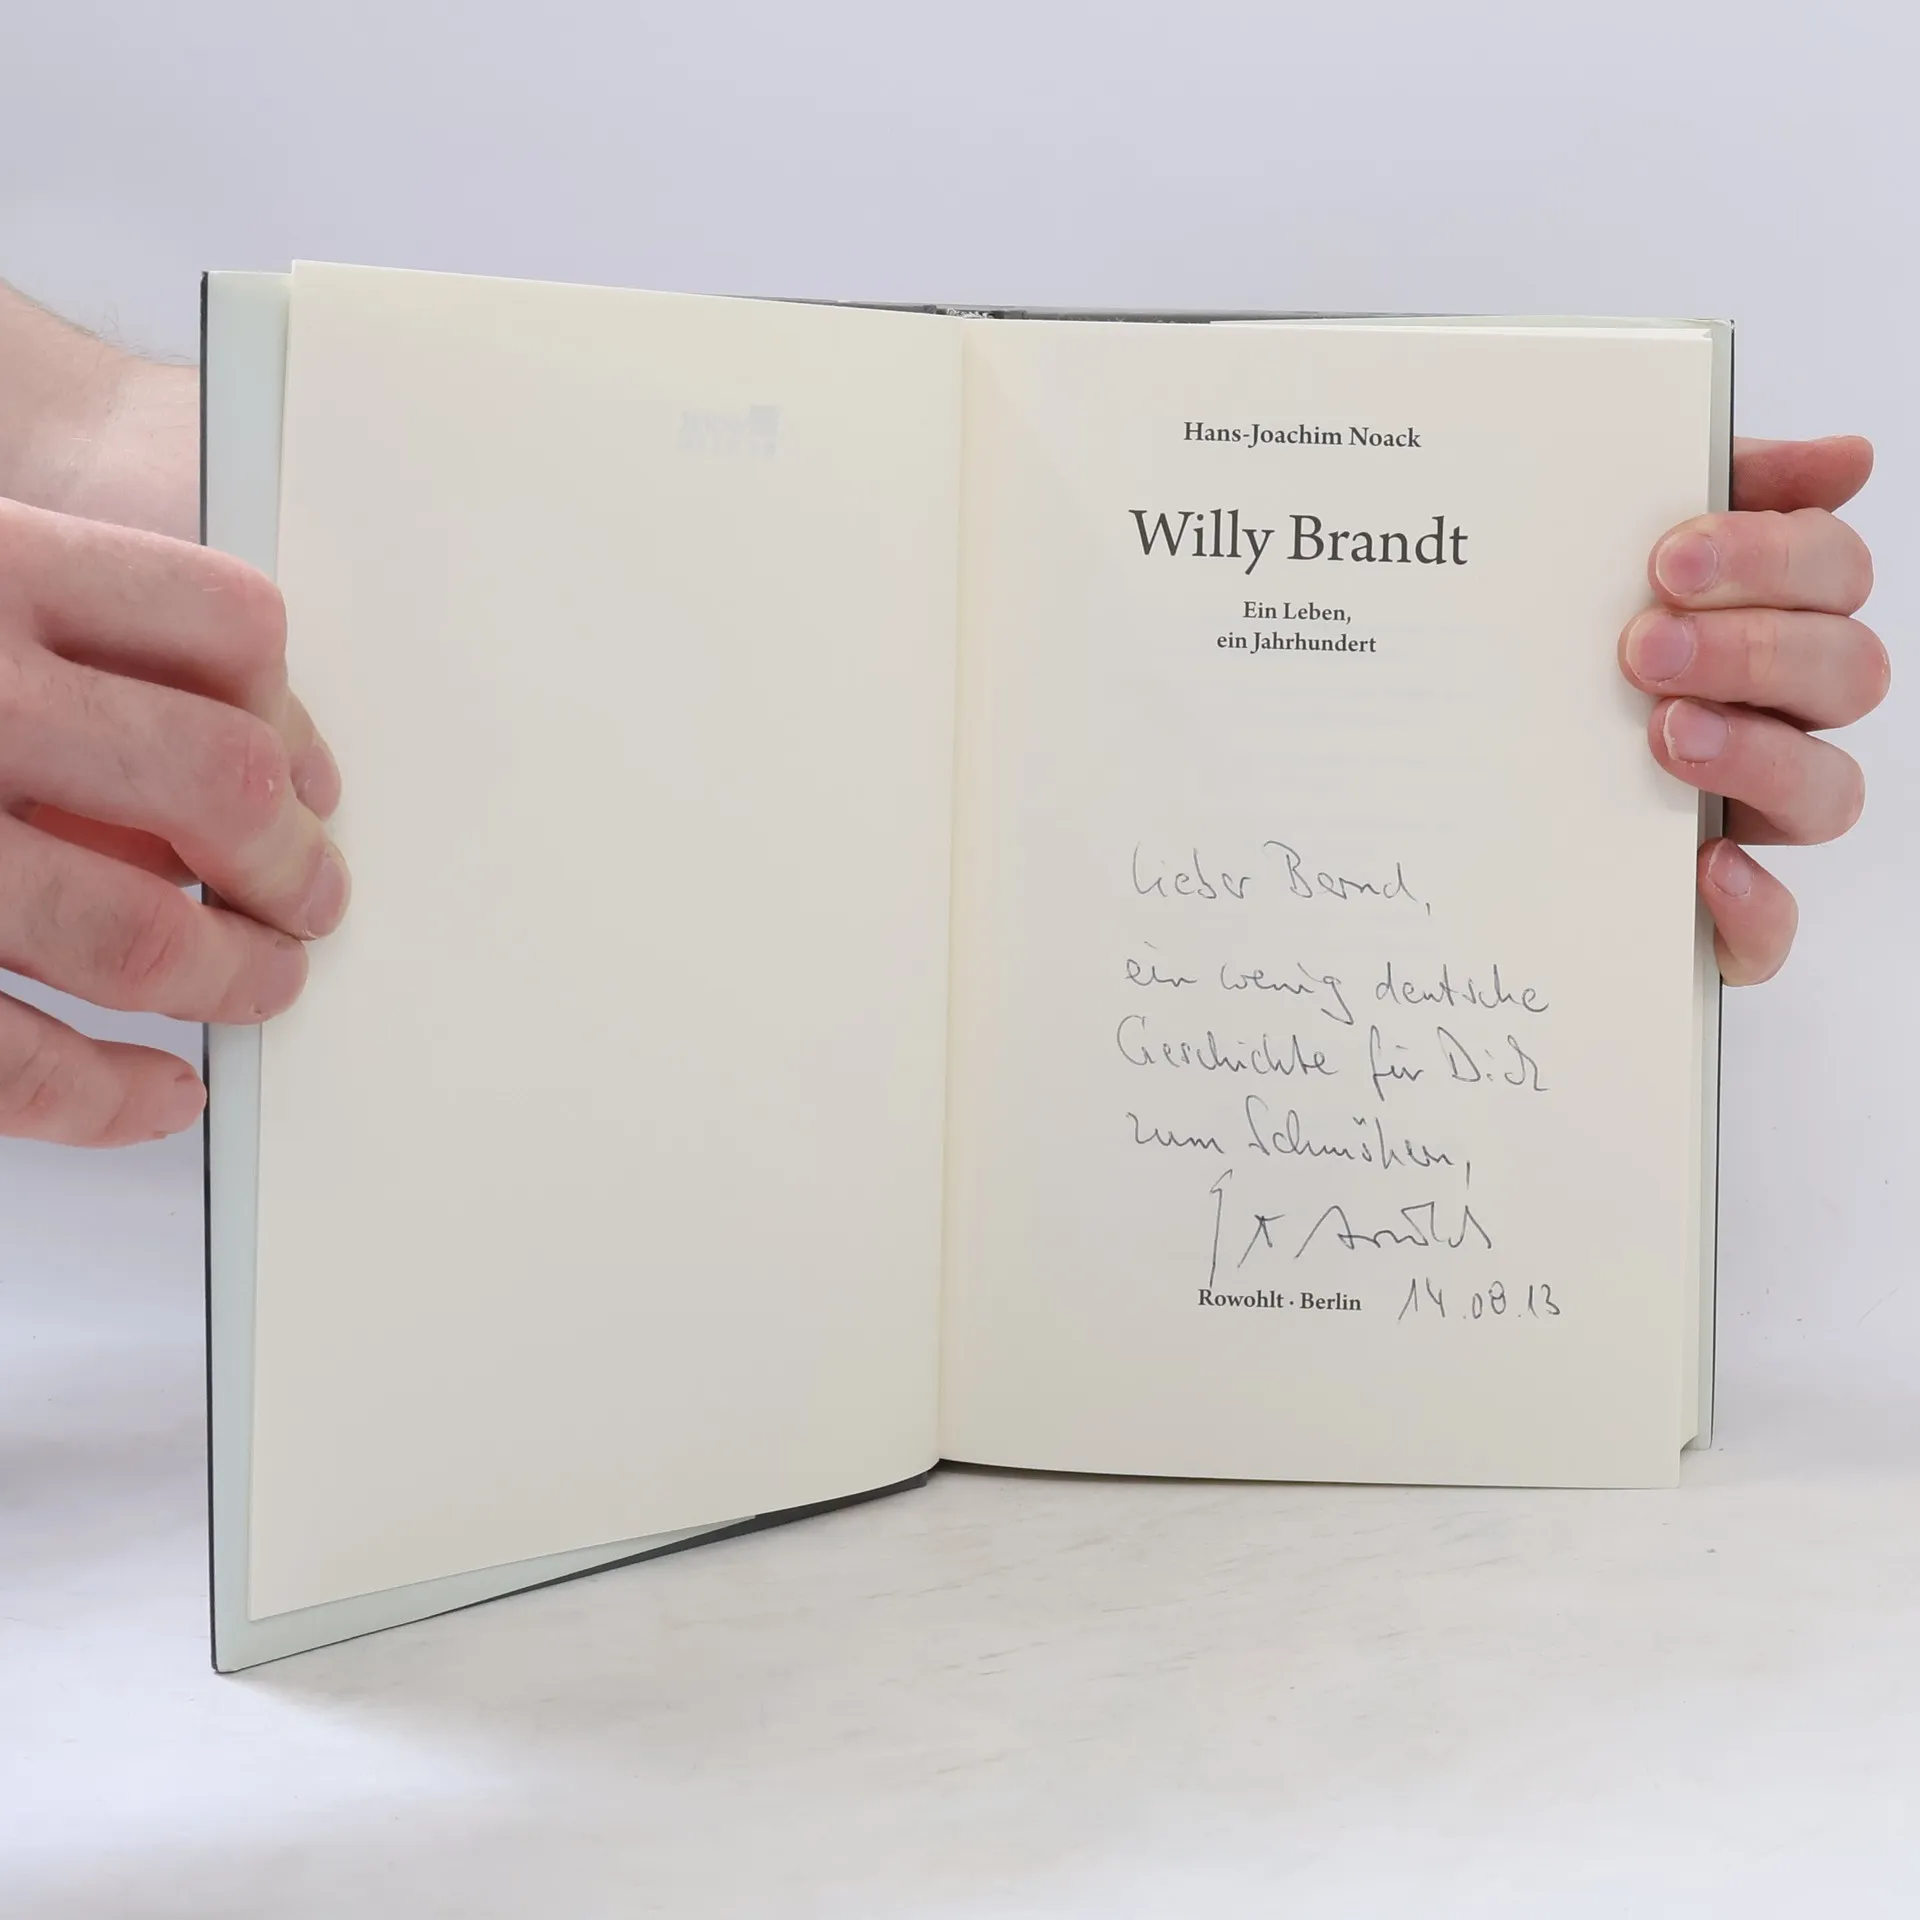 Hans-Joachim Noack
Willy Brandt
Ein Leben,
ein Jahrhundert
Lieber Bernd,
ein wenig deutsche
Geschichte für Dich
zum Schmökern,
Arnold
Rowohlt · Berlin 14.08.13